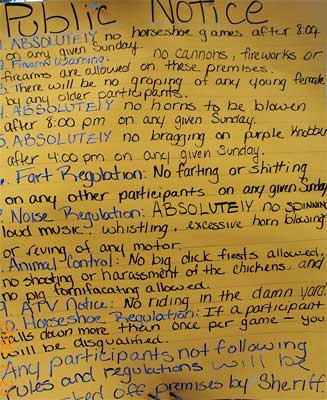 Public Notice
1. ABSOLUTELY no horseshoe games after 8:00
on any given Sunday.
2. Firearms Warning: no cannons, fireworks or
firearms are allowed on these premises.
3. There will be no groping of any young female
by any older participants.
4. ABSOLUTELY no horns to be blowen
after 8:00 pm on any given Sunday.
5. ABSOLUTELY no bragging on purple Knotbur
after 4:00 pm on any given Sunday.
Fart Regulation: No farting or shitting
on any other participants on any given Sunday
7. Noise Regulation: ABSOLUTELY no spinning
loud music, whistling, excessive horn blowing
or reving of any motor.
Animal Control: No big dick fiests allowed,
no shooting or harassment of the chickens, and
no pig fornifacating allowed.
9. ATV Notice: No riding in the damn yard.
10. Horseshoe Regulation: If a participant
falls down more than once per game - you
will be disqualified.
Any participants not following
rules and regulations will be
off premises by Sheriff.